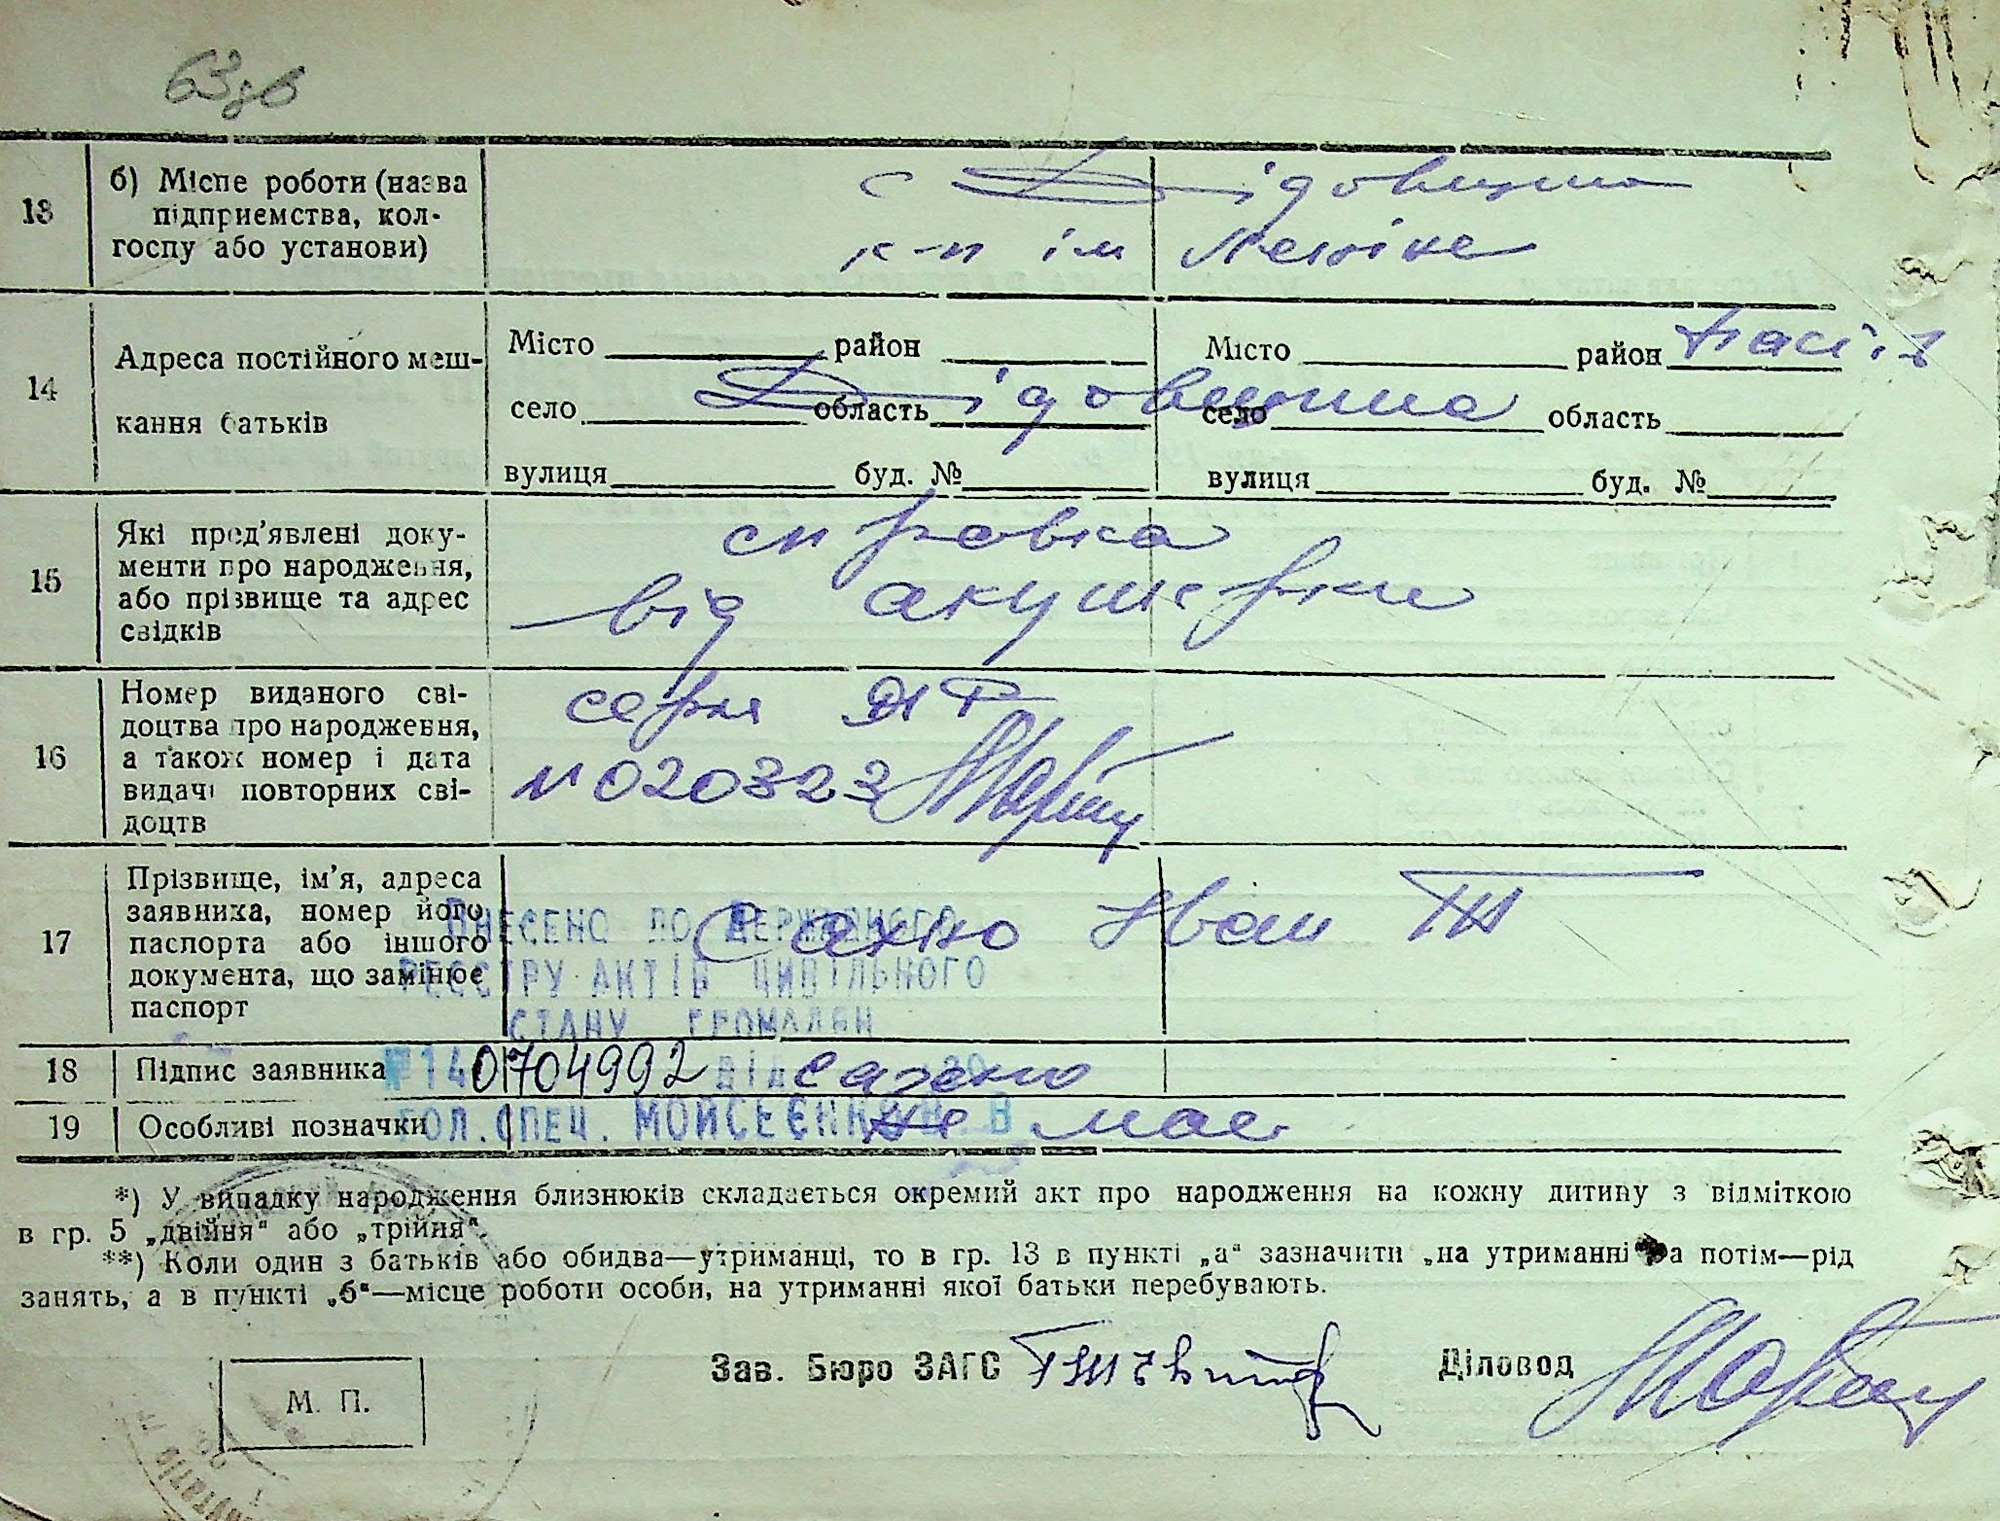 63зв
13 б) Місце роботи (назва підприємства, колгоспу або установи)
с Дідовщина
к-п ім Леніна
14 Адреса постійного мешкання батьків
Місто район Місто район
село Дідовщина область село область
вулиця буд. № вулиця буд. №
15 Які пред'явлені документи про народження, або прізвище та адрес свідків
справка
від акушерки
16 Номер виданого свідоцтва про народження, а також номер і дата видачі повторних свідоцтв
серія
№ 020323
17 Прізвище, ім'я, адреса заявника, номер його паспорта або іншого документа, що замінює паспорт
Сахно Іван
Внесено до Державного
реєстру актів цивільного
стану громадян
18 Підпис заявника Сахно
№ 140704992 від 20
19 Особливі позначки не має
Гол. спец. Мойсеєнко В. В
*) У випадку народження близнюків складається окремий акт про народження на кожну дитину з відміткою
в гр. 5 „двійня“ або „трійня“.
**) Коли один з батьків або обидва—утриманці, то в гр. 13 в пункті „а“ зазначити „на утриманні“ а потім—рід
занять, а в пункті „б“—місце роботи особи, на утриманні якої батьки перебувають.
Зав. Бюро ЗАГС Діловод
М. П.